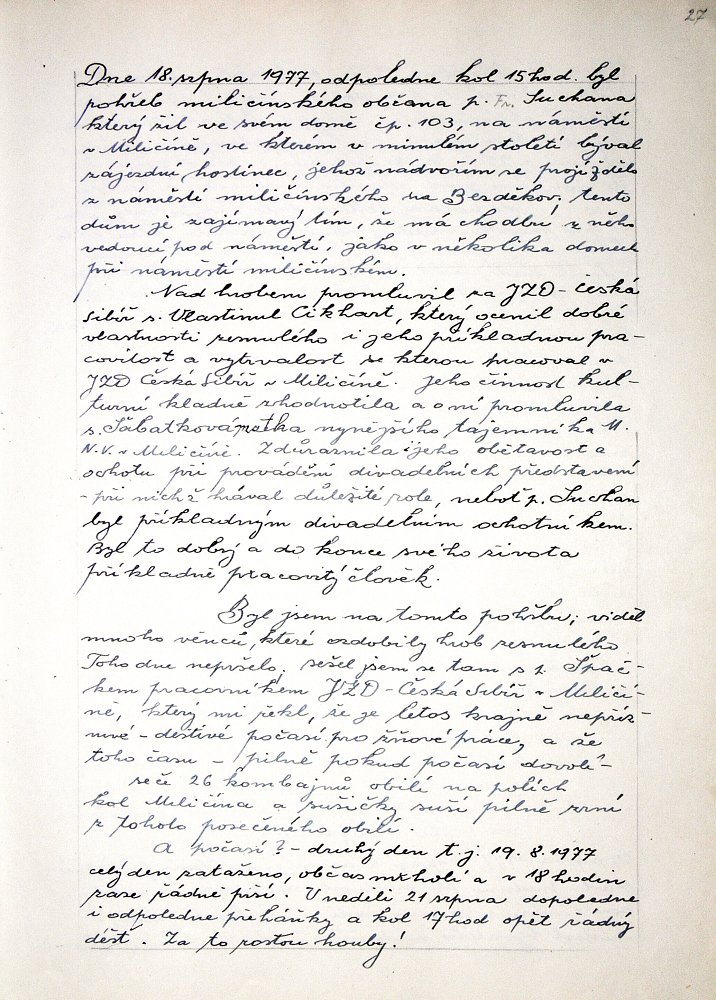 27
Dne 18. srpna 1977, odpoledne kol 15 hod. byl
pohřeb miličínského občana p. Fr. Suchana
který žil ve svém domě čp. 103, na náměstí
v Miličíně, ve kterém v minulém století býval
zájezdní hostinec, jehož nádvořím se projíždělo
z náměstí miličínského na Bezděkov; tento
dům je zajímavý tím, že má chodbu z něho
vedoucí pod náměstí, jako v několika domech
při náměstí miličínském.
Nad hrobem promluvil za JZD - Česká
Sibiř s. Vlastimil Cikhart, který ocenil dobré
vlastnosti zesnulého i jeho příkladnou pra-
covitost a vytrvalost se kterou pracoval v
JZD Česká Sibiř v Miličíně. Jeho činnost kul-
turní kladně zhodnotila a o ní promluvila
s. Šabatková matka nynějšího tajemníka M.
N.V. v Miličíně. Zdůraznila i jeho obětavost a
ochotu při provádění divadelních představení
- při nichž hrával důležité role, neboť p. Suchan
byl příkladným divadelním ochotníkem.
Byl to dobrý a do konce svého života
příkladně pracovitý člověk.
Byl jsem na tomto pohřbu; viděl
mnoho věnců, které ozdobily hrob zesnulého.
Toho dne nepršelo; sešel jsem se tam s p. Špač-
kem pracovníkem JZD - Česká Sibiř v Miličí-
ně, který mi řekl, že je letos krajně nepříz-
nivé - deštivé počasí pro žňové práce, a že
toho času - pilně pokud počasí dovolí -
seče 26 kombajnů obilí na polích
kol Miličína a sušičky suší pilně zrní
z tohoto posečeného obilí.
A počasí? - druhý den t.j. 19. 8. 1977
celý den zataženo, občas mrholí a v 18 hodin
zase řádně prší. V neděli 21 srpna dopoledne
i odpoledne přeháňky a kol 17 hod opět řádný
déšť. Za to rostou houby!